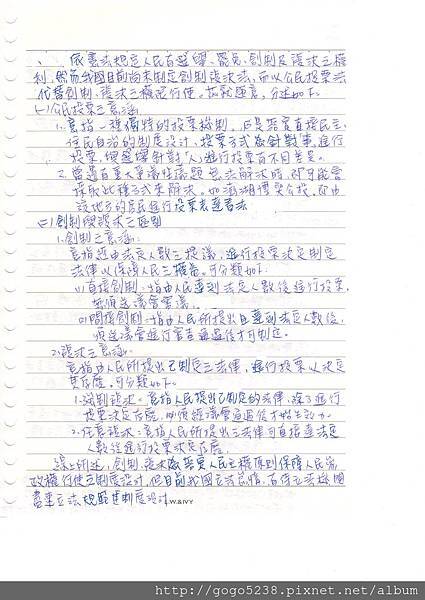 、依憲法規定人民有選舉、罷免、創制及複決之權
利,然而我國目前尚未制定創制複決法,而以公民投票法
代替創制、複決之權之行使。茲就題意,分述如下:
(一)公民投票之意涵
1.意指一種獨特的投票機制。也是落實直接民主、
住民自治的制度設計。投票方式係針對事進行
投票,與選舉針對「人」進行投票有不同差異。
2.當遇有重大爭議性議題無法解決時,即可能會
採取此種方式來解決。如澎湖博奕公投,即由
該地方的居民進行投票表達看法
(二)創制與複決之區別
1.創制之意涵:
意指經由法定人數之提議,進行投票決定制定
法律以保障人民之權益。可分類如下:
(1)直接創制:指由人民達到法定人數後進行投票,
無須送議會審議。
(2)間接創制:指由人民所提出且達到法定人數後,
須送議會進行審查通過後才可制定。
2.複決之意涵:
意指由人民所提出已制定之法律,進行投票以決定
其存廢。可分類如下:
1.強制複決:意指人民提出已制定的法律,除了進行
投票決定存廢,必須經議會通過後才始生效力。
2.任意複決:意指人民所提出之法律可直接達法定
人數後進行投票決定存廢。
綜上所述,創制、複決為落實人民主權原則保障人民參
政權行使之制度設計,但目前我國立法
盡業立法規範其制度設計。
W&IVY
http://gogo5238.pixnet.net/album